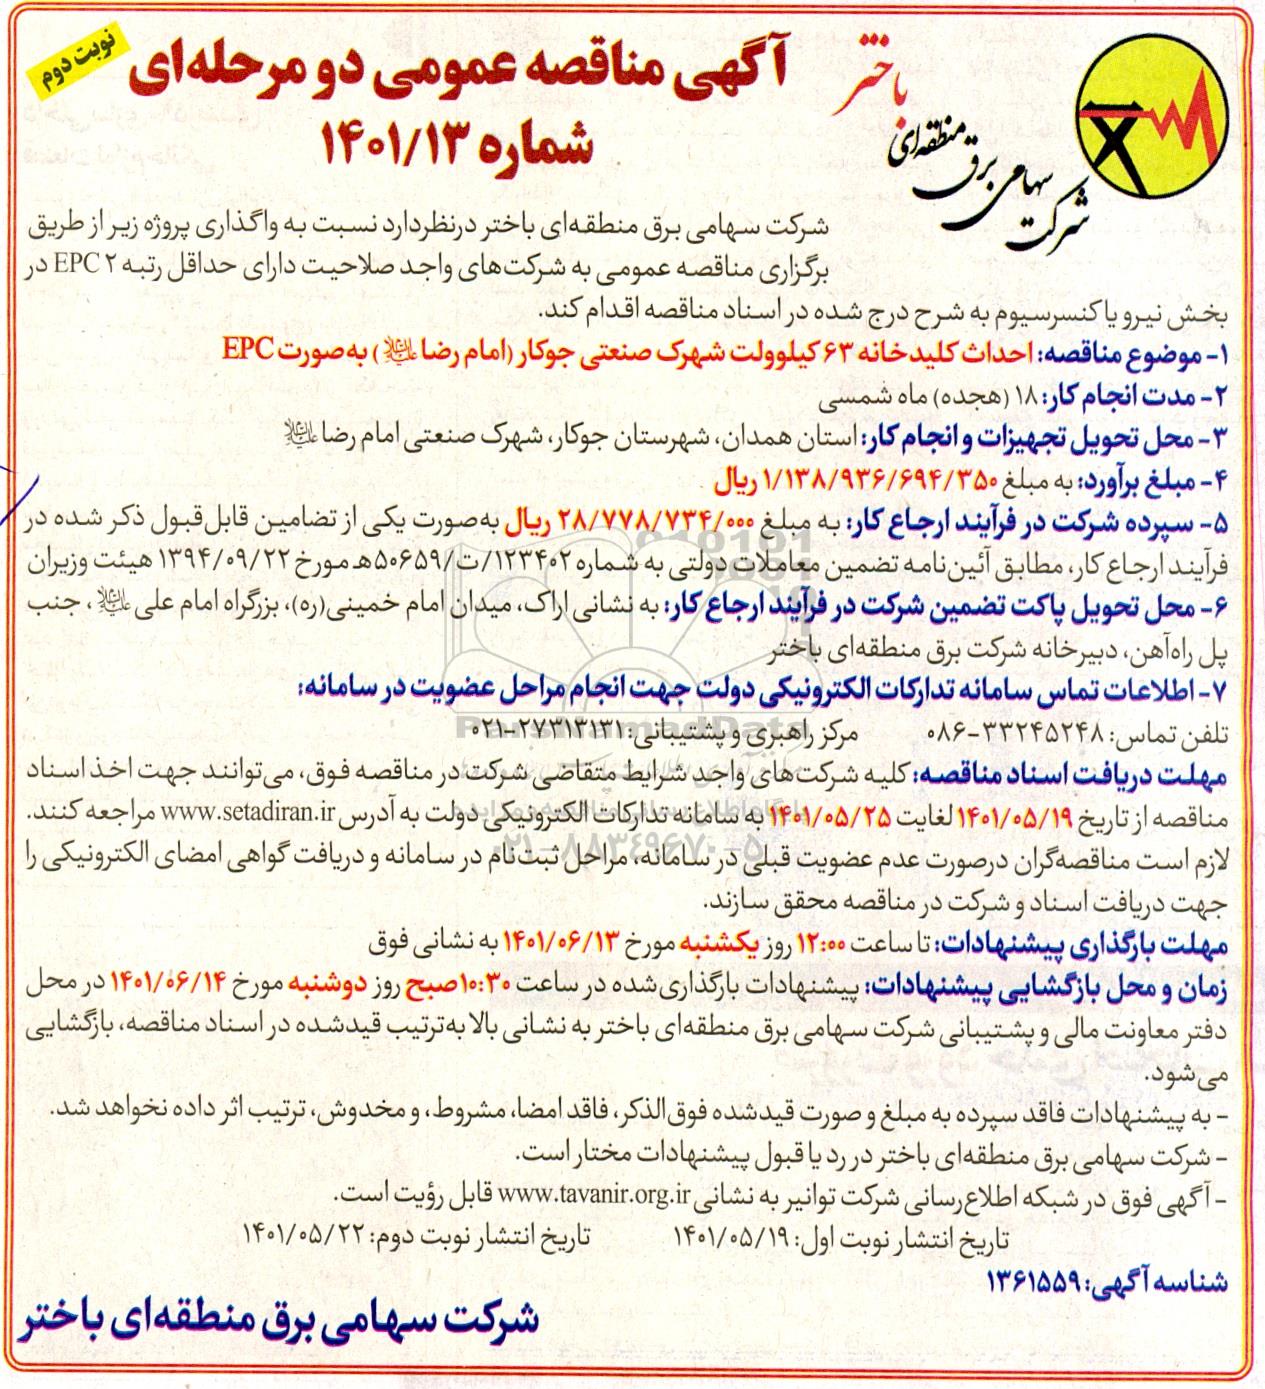 نوبت دوم
آگهی مناقصه عمومی دو مرحله‌ای
شماره ۱۴۰۱/۱۳
باختر
شرکت سهامی برق منطقه‌ای
شرکت سهامی برق منطقه‌ای باختر درنظردارد نسبت به واگذاری پروژه زیر از طریق
برگزاری مناقصه عمومی به شرکت‌های واجد صلاحیت دارای حداقل رتبه ۲ EPC در
بخش نیرو یا کنسرسیوم به شرح درج شده در اسناد مناقصه اقدام کند.
۱- موضوع مناقصه: احداث کلیدخانه ۶۳ کیلوولت شهرک صنعتی جوکار (امام رضا علیه‌السلام) به‌صورت EPC
۲- مدت انجام کار: ۱۸ (هجده) ماه شمسی
۳- محل تحویل تجهیزات و انجام کار: استان همدان، شهرستان جوکار، شهرک صنعتی امام رضا علیه‌السلام
۴- مبلغ برآورد: به مبلغ ۱/۱۳۸/۹۳۶/۶۹۴/۳۵۰ ریال
۵- سپرده شرکت در فرآیند ارجاع کار: به مبلغ ۲۸/۷۷۸/۷۳۴/۰۰۰ ریال به‌صورت یکی از تضامین قابل‌قبول ذکر شده در
فرآیند ارجاع کار، مطابق آئین‌نامه تضمین معاملات دولتی به شماره ۱۲۳۴۰۲/ت/۵۰۶۵۹هـ مورخ ۱۳۹۴/۰۹/۲۲ هیئت وزیران
۶- محل تحویل پاکت تضمین شرکت در فرآیند ارجاع کار: به نشانی اراک، میدان امام خمینی(ره)، بزرگراه امام علی علیه‌السلام، جنب
پل راه‌آهن، دبیرخانه شرکت برق منطقه‌ای باختر
۷- اطلاعات تماس سامانه تدارکات الکترونیکی دولت جهت انجام مراحل عضویت در سامانه:
تلفن تماس: ۳۳۲۴۵۲۴۸-۰۸۶ مرکز راهبری و پشتیبانی: ۲۷۳۱۳۱۳۱-۰۲۱
مهلت دریافت اسناد مناقصه: کلیه شرکت‌های واجد شرایط متقاضی شرکت در مناقصه فوق، می‌توانند جهت اخذ اسناد
مناقصه از تاریخ ۱۴۰۱/۰۵/۱۹ لغایت ۱۴۰۱/۰۵/۲۵ به سامانه تدارکات الکترونیکی دولت به آدرس www.setadiran.ir مراجعه کنند.
لازم است مناقصه‌گران درصورت عدم عضویت قبلی در سامانه، مراحل ثبت‌نام در سامانه و دریافت گواهی امضای الکترونیکی را
جهت دریافت اسناد و شرکت در مناقصه محقق سازند.
مهلت بارگذاری پیشنهادات: تا ساعت ۱۲:۰۰ روز یکشنبه مورخ ۱۴۰۱/۰۶/۱۳ به نشانی فوق
زمان و محل بازگشایی پیشنهادات: پیشنهادات بارگذاری‌شده در ساعت ۱۰:۳۰ صبح روز دوشنبه مورخ ۱۴۰۱/۰۶/۱۴ در محل
دفتر معاونت مالی و پشتیبانی شرکت سهامی برق منطقه‌ای باختر به نشانی بالا به‌ترتیب قیدشده در اسناد مناقصه، بازگشایی
می‌شود.
- به پیشنهادات فاقد سپرده به مبلغ و صورت قیدشده فوق‌الذکر، فاقد امضا، مشروط، و مخدوش، ترتیب اثر داده نخواهد شد.
- شرکت سهامی برق منطقه‌ای باختر در رد یا قبول پیشنهادات مختار است.
- آگهی فوق در شبکه اطلاع‌رسانی شرکت توانیر به نشانی www.tavanir.org.ir قابل رؤیت است.
تاریخ انتشار نوبت اول: ۱۴۰۱/۰۵/۱۹ تاریخ انتشار نوبت دوم: ۱۴۰۱/۰۵/۲۲
شناسه آگهی: ۱۳۶۱۵۵۹
شرکت سهامی برق منطقه‌ای باختر
ParsNamadData
۰۲۱-۸۸۳۴۹۶۷۰-۵